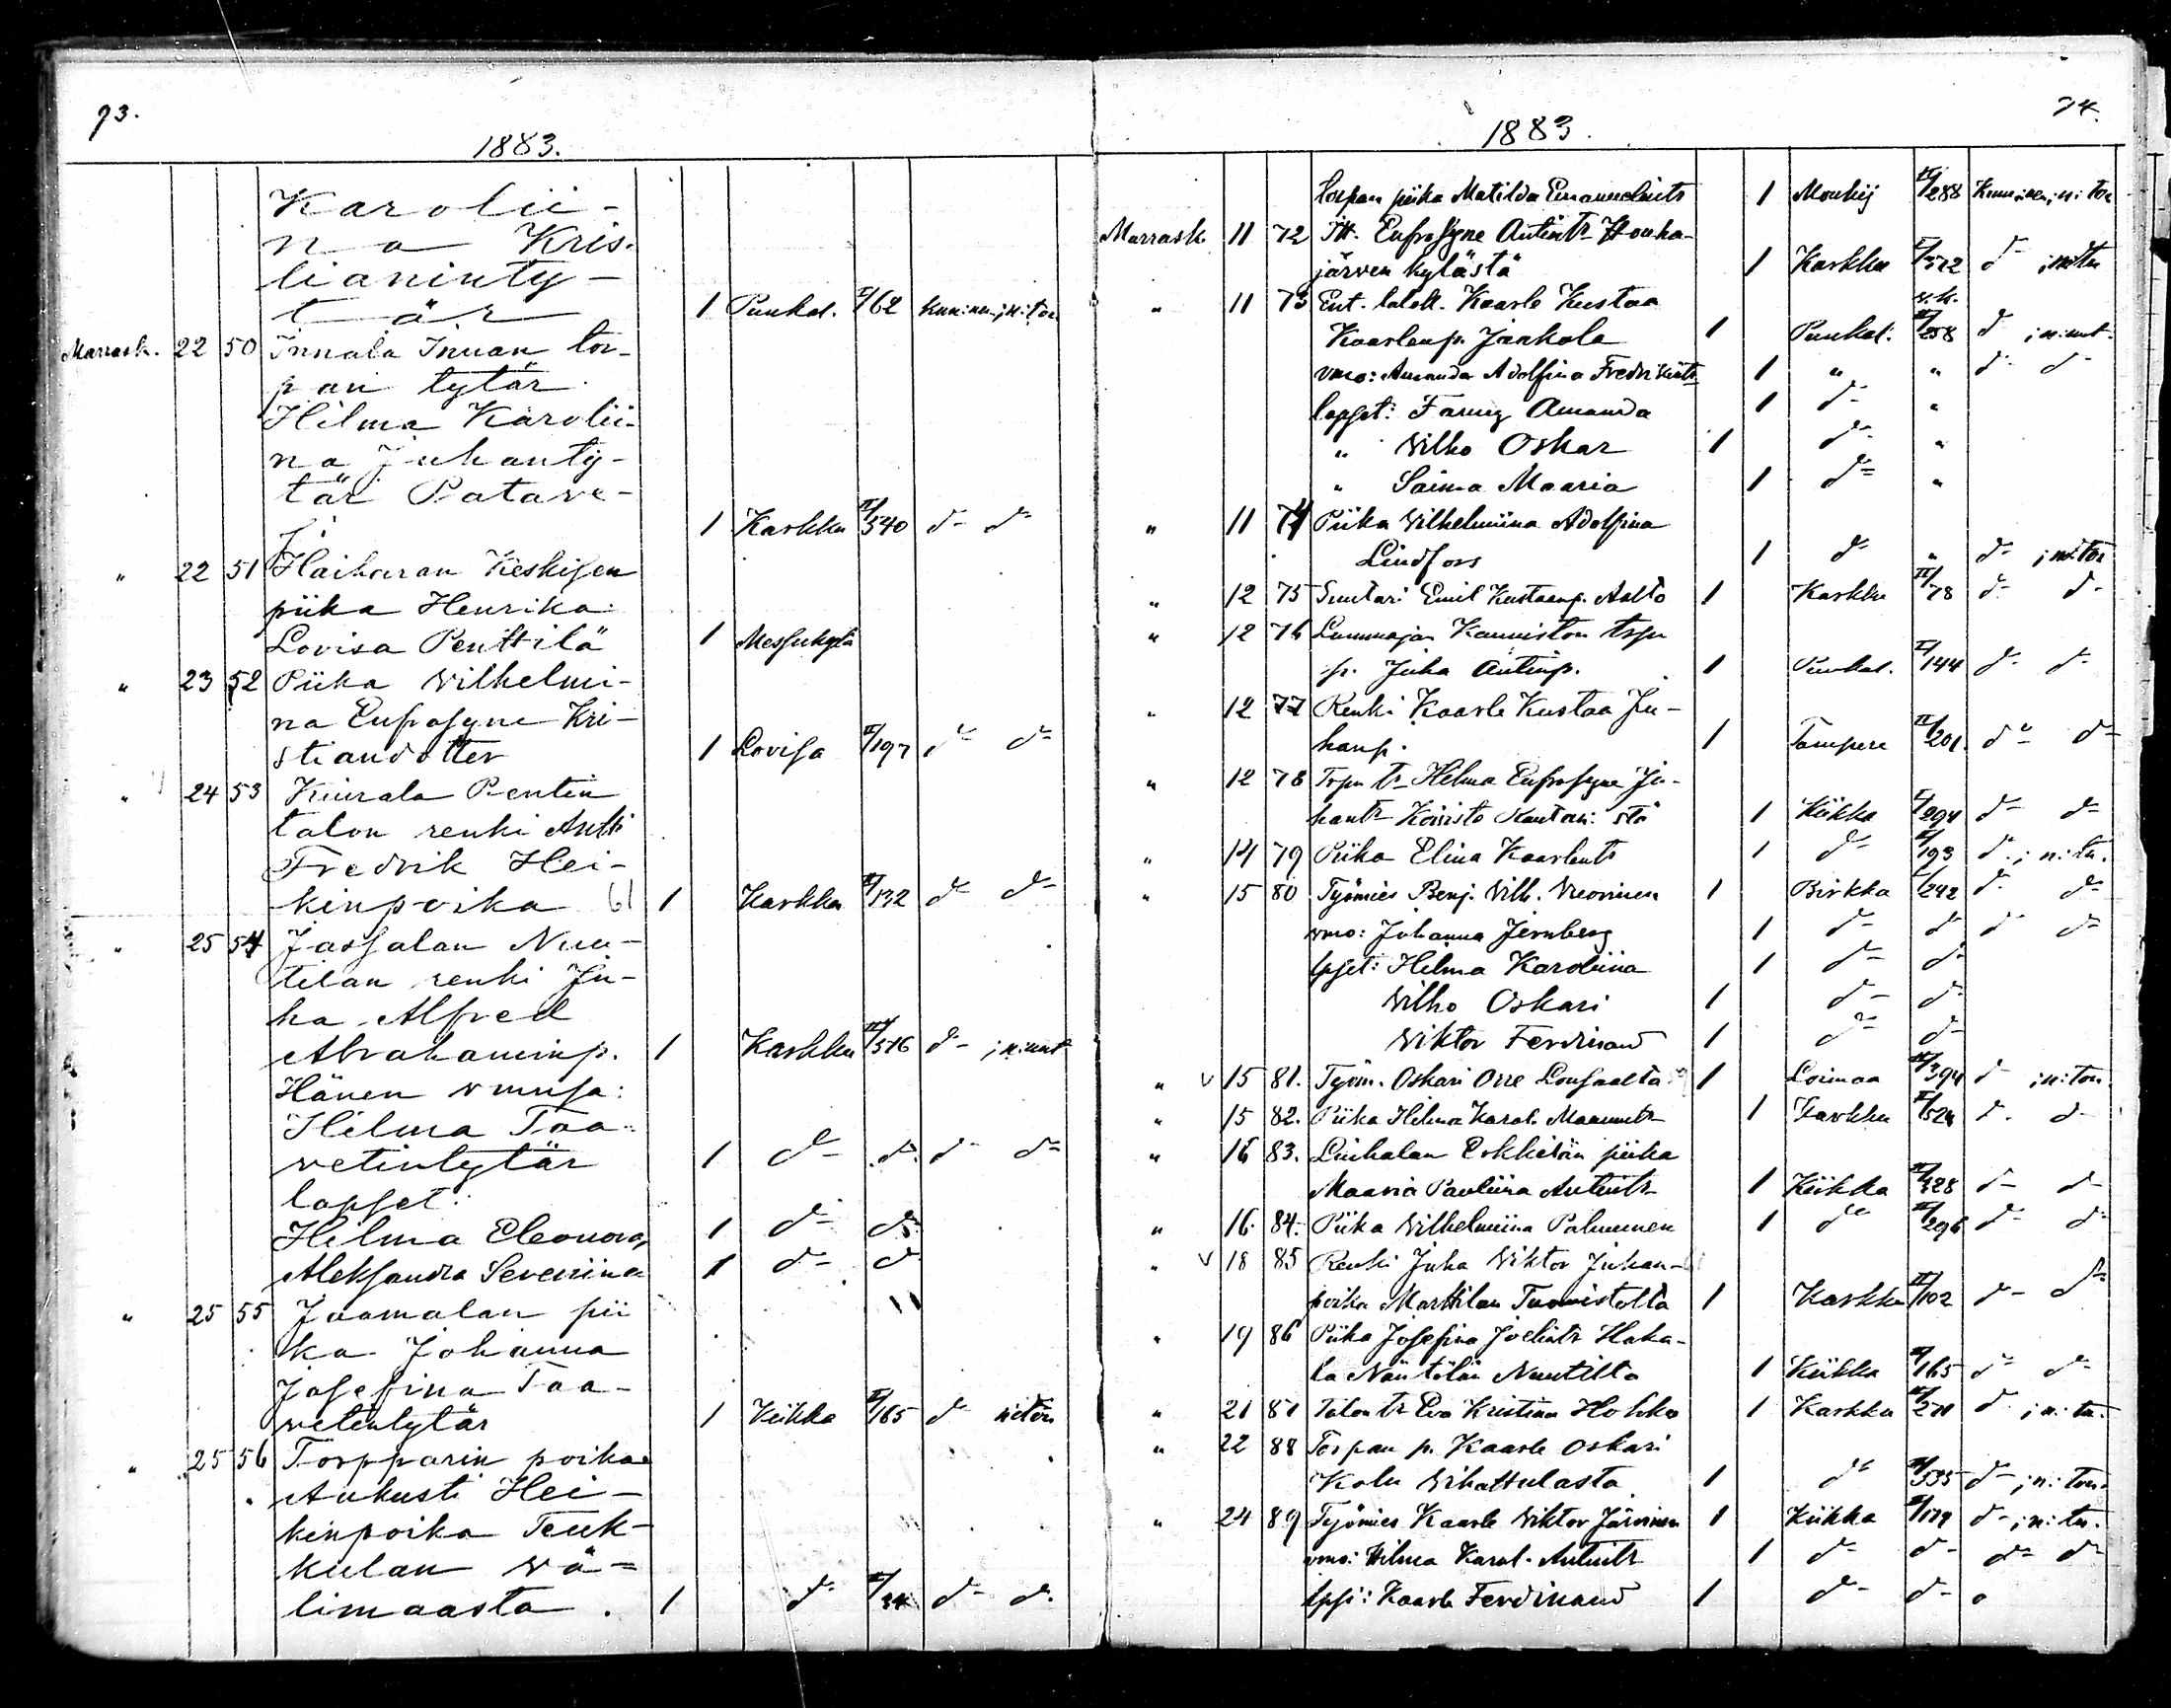 73.
1883.
Karolii-
na Kris-
tianinty-
tär 1 Punkal. I/62
Marrask. 22 50 Innala Innan tor-
pan tytär
Hilma Karolii-
na Juhanty-
tär Patave-
1 Karkku II/540 d- d-
" 22 51 Haiharan Keskisen
piika Henrika
Lovisa Penttilä 1 Messukylä
" 23 52 Piika Wilhelmi-
na Eufrosyne Kri-
stiandotter 1 Lovisa II/197 d- d-
" 24 53 Kiurala Pentin
talon renki Antti
Fredrik Hei-
kinpoika 61 1 Karkku II/132 d- d-
" 25 54 Jassalan Nuu-
tilan renki Ju-
ha Alfred
Abrahaminp. 1 Karkku II/516 d- ;n:nut
Hänen vmnsa:
Hilma Taa-
vetintytär 1 d- d- d- d-
lapset:
Helma Eleonora 1 d- d-
Aleksandra Severiina 1 d- d-
" 25 55 Jaamalan pii
ka Johanna
Josefina Taa-
vetintytär 1 Kiikka II/165 d- nitön
" 25 56 Torpparin poika
Aukusti Hei-
kinpoika Teuk-
kulan Vä-
limaasta . 1 d- d- d-
74.
1883.
Torpan piika Matilda Emanuelints 1 Mouhij II/288
Marrask. 11 72 Itt. Eufrosyne Antintr Houha-
järven kylästä 1 Karkku d-
" 11 73 Ent. taloll. Kaarle Kustaa
Kaarlenp. Jaakola 1 Punkal. II/258 d- ;n:nut.
vmo: Amanda Adolfina Fredrikints 1 " " d- d-
lapset: Fanny Amanda 1 d- "
" Wilho Oskar 1 d- "
" Saima Maaria 1 d- "
" 11 74 Piika Wilhelmiina Adolfina
Lindfors 1 d- " d-
" 12 75 Suutari Emil Kustaanp. Aalto 1 Karkku II/78 d- d-
" 12 76 Lammajan Kanniston trpn
p. Juha Antinp. 1 Punkal. II/144 d- d-
" 12 77 Renki Kaarle Kustaa Ju-
hanp. 1 Tampere II/201. d- d-
" 12 78 Trpn tr Helma Eufrosyne Ju-
hantr Koivisto Kautan: stä 1 Kiikka I/294 d- d-
" 14 79 Piika Elina Kaarlents 1 d- II/193 d- ;n:tu.
" 15 80 Työmies Benj. Wilh. Wuorinen 1 Birkka I/242 d- d-
vmo: Johanna Jernberg 1 d- d- d- d-
lpset: Helma Karoliina 1 d- d-
Wilho Oskari 1 d- d-
Viktor Ferdinand 1 d- d-
" v 15 81. Työm. Oskari Orre Lousaalta 1 Loimaa II/394 d- ;n:ton
" 15 82. Piika Helma Karol. Manuntr 1 Karkku II/524 d- d-
" 16 83. Liuhalan Erkkilän piika
Maaria Pauliina Antintr 1 Kiikka II/328 d- d-
" 16. 84. Piika Wilhelmiina Palmunen 1 d- II/296 d- d-
" v 18 85 Renki Juha Viktor Juhan-
poika Marttilan Tuomistolta 1 Karkku II/102 d- d-
" 19 86 Piika Josefina Joelintr Haka-
la Näntölän Nuutilta 1 Kiikka II/165 d- d-
" 21 87 Talon tr Eva Kristiina Hohko 1 Karkku II/271 d- ;n:tu.
" 22 88 Torpan p. Kaarle Oskari
Kolu Wihattulasta 1 d- II/535 d- ;n:ton.
" 24 89 Työmies Kaarle Viktor Järvinen 1 Kiikka II/179 d- ;n:tu.
vmo: Hilma Karol. Antintr 1 d- d- d- d-
lpsi: Kaarle Ferdinand 1 d- d-